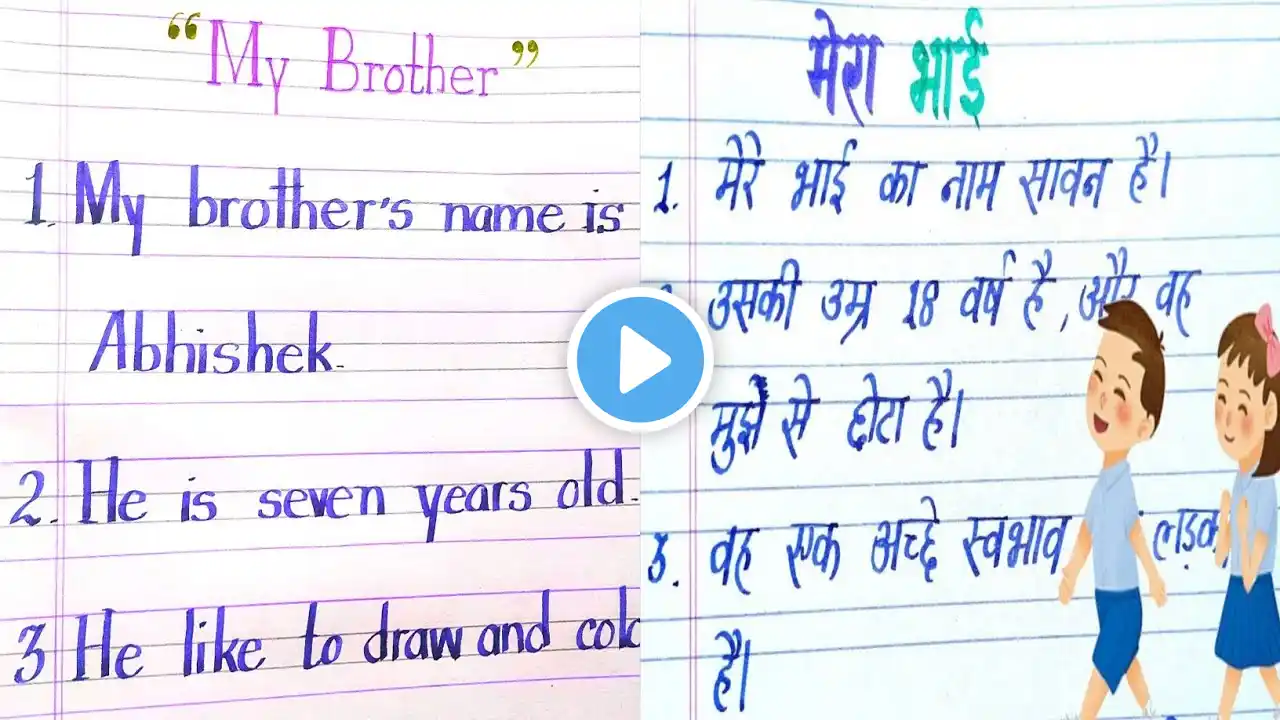 “My Brother”
1. My brother's name is
Abhishek.
2. He is seven years old.
3 He like to draw and
मेरा भाई
1. मेरे भाई का नाम सावन है।
उसकी उम्र 18 वर्ष है, और वह
मुझे से छोटा है।
3. वह एक अच्छे स्वभाव
है।